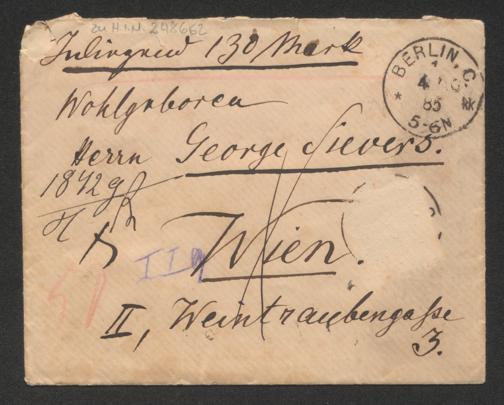 zu H.I.N. 248662
Inliegend 130 Mark
BERLIN, C.
1
4
85
5-6N
Wohlgeboren
Herrn George Sievers.
1842
Wien.
II, Weintraubengaße
3.